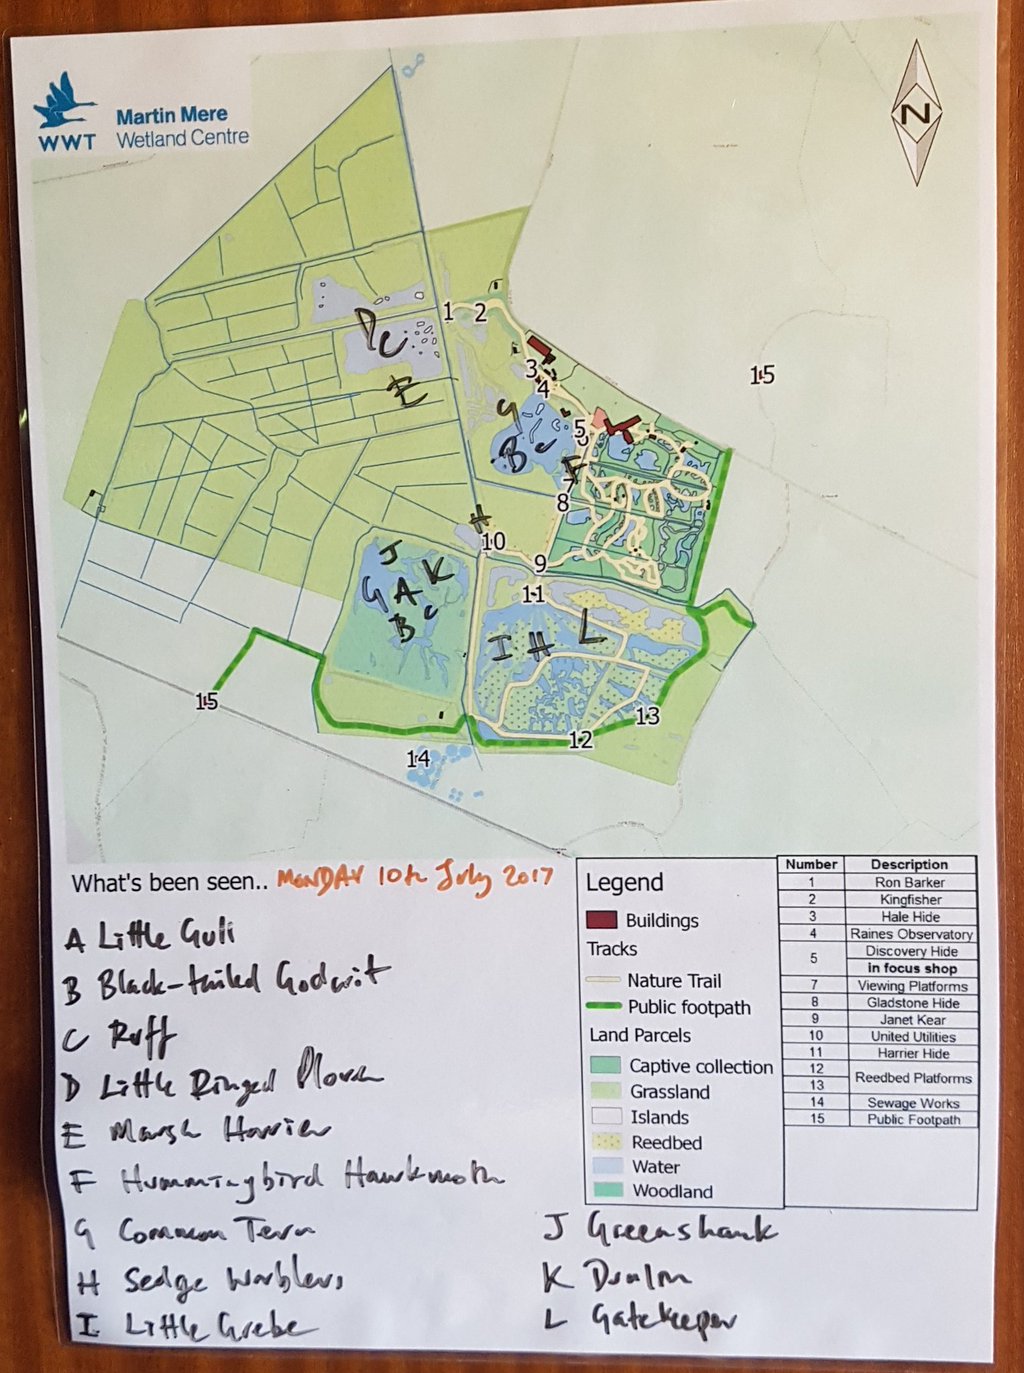 WWT
Martin Mere
Wetland Centre
N
D
C
E
1
2
3
4
15
G
B C
5
F
7
8
H
10
9
11
J
G A K
B C
I H L
15
13
12
14
What's been seen.. MONDAY 10th July 2017
A Little Gull
B Black-tailed Godwit
C Ruff
D Little Ringed Plover
E Marsh Harrier
F Hummingbird Hawkmoth
G Common Tern
H Sedge Warblers
I Little Grebe
J Greenshank
K Dunlin
L Gatekeeper
Legend
Buildings
Tracks
Nature Trail
Public footpath
Land Parcels
Captive collection
Grassland
Islands
Reedbed
Water
Woodland
Number Description
1 Ron Barker
2 Kingfisher
3 Hale Hide
4 Raines Observatory
5 Discovery Hide
in focus shop
7 Viewing Platforms
8 Gladstone Hide
9 Janet Kear
10 United Utilities
11 Harrier Hide
12
13 Reedbed Platforms
14 Sewage Works
15 Public Footpath